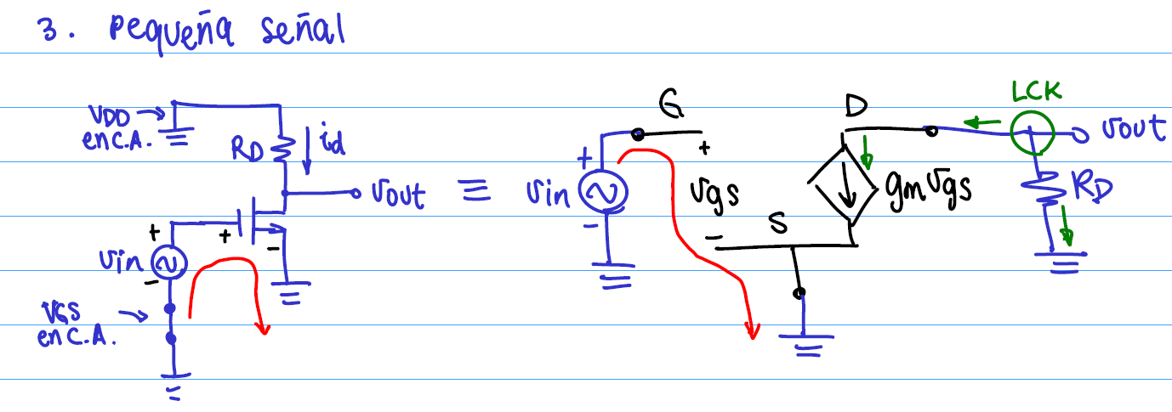 3. Pequeña señal
VDD
en C.A.
RD
id
vout
≡
+
vin
-
+
-
VGS
en C.A.
G
+
vgs
-
S
+
vin
-
D
gmvgs
LCK
vout
RD